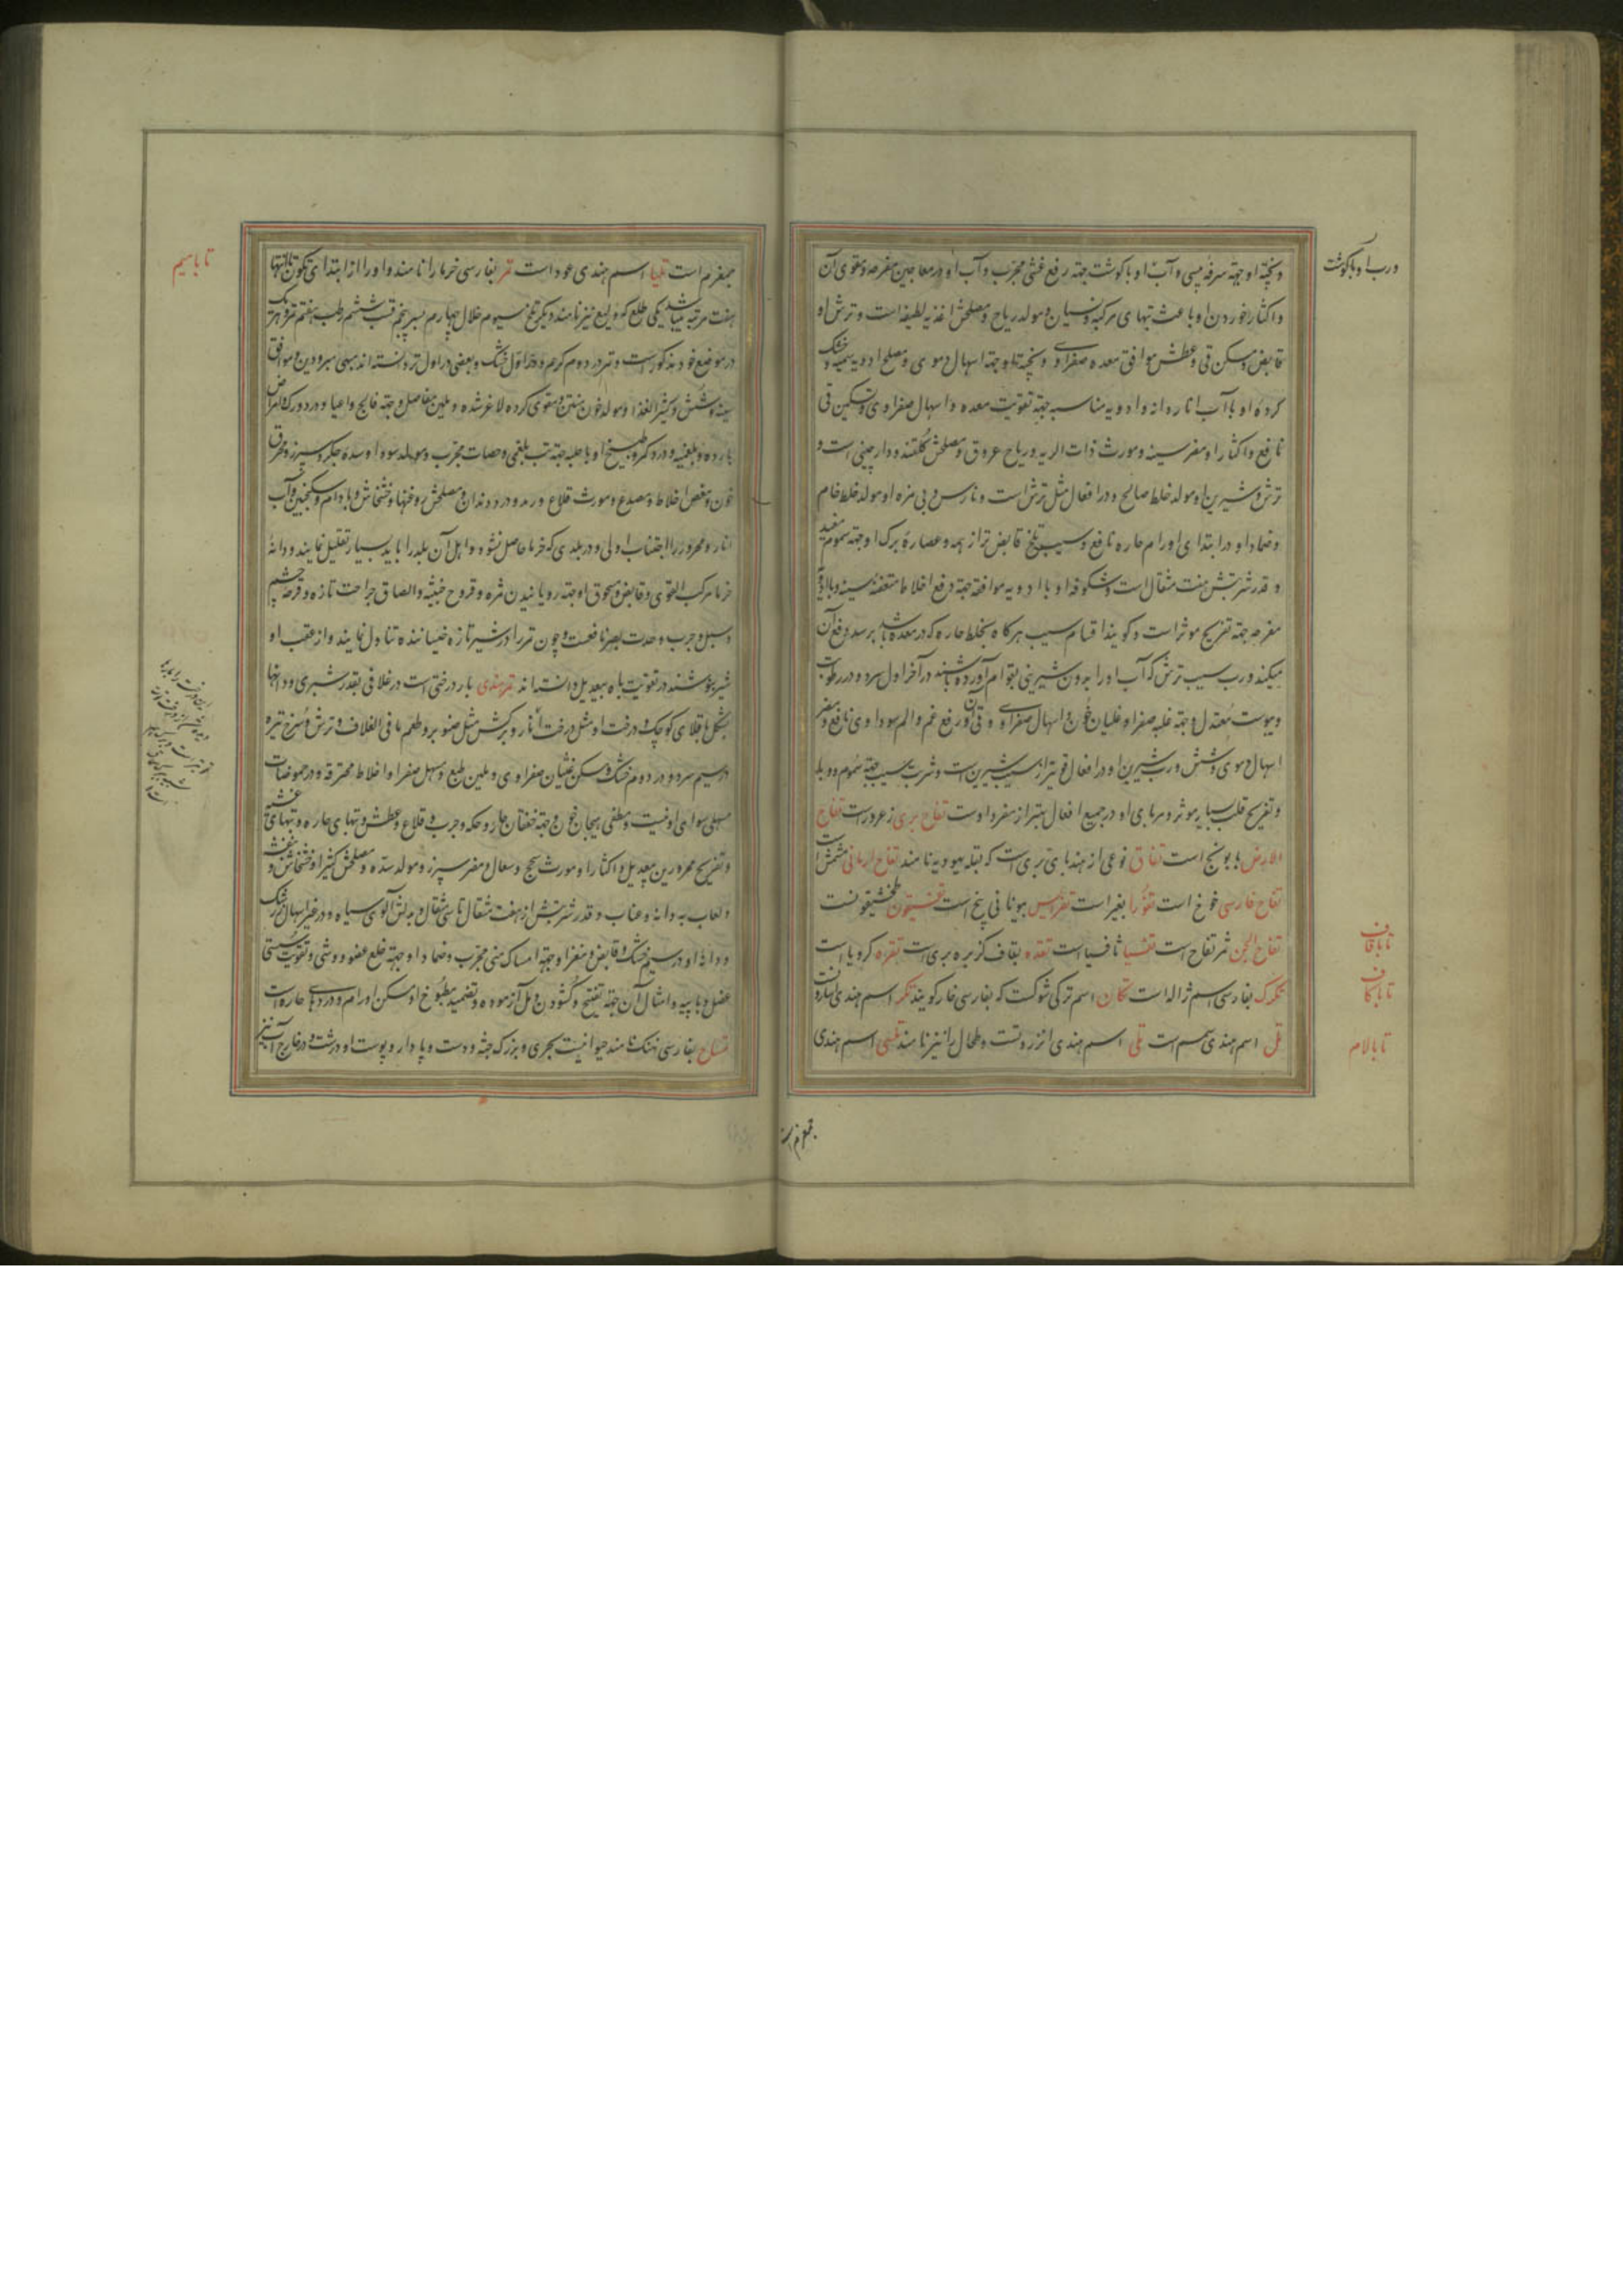 و پخته او جهته سرفه یبسی و آب او با گوشت جهته رفع غشی مجرب و آب او در معاجین مفرحه و مقوی آن
و رب او با گوشت
و اکثار خوردن او باعث تبهای مرکبه و نسیان و مولد ریاح و مصلحش اغذیه لطیفه است و ترش او
قابض و مسکن قی و عطش موافق معده صفراوی و پخته او جهته اسهال دموی و مصلح ادویه سمیه و خشک
کرده او با آب انار دانه و ادویه مناسبه جهته تقویت معده و اسهال صفراوی و تسکین قی
نافع و اکثار او مضر سینه و مورث ذات الریه و ریاح عروق و مصلحش گلقند و دارچینی است و
ترش و شیرین او مولد خلط صالح و در افعال مثل ترش است و نارس و بی مزه او مولد خلط خام
و ضماد او در ابتدای اورام حاره نافع و سیب تلخ قابض تر از همه و عصاره برگ او جهته سموم مفید
و قدر شربتش هفت مثقال است و شکوفه او با ادویه موافقه جهته دفع اخلاط متعفنه سینه و با ادویه
مفرحه جهته تفریح موثر است و گویند اقسام سیب هرگاه بخلط حاره که در معده باشد برسد دفع آن
میکند و رب سیب ترش که آب او را بدون شیرینی بقوام آورده باشند در آخر اول سرد و در رطوبت
و یبوست معتدل و جهته غلبه صفرا و غلیان خون و اسهال صفراوی و قی آن و رفع غم و الم سوداوی نافع و مضر
اسهال دموی و شش و رب شیرین او در افعال قویتر از سیب شیرین است و شربت سیب جهته سموم و وبا
و تفریح قلب بسیار موثر و مربای او در جمیع افعال بهتر از مفرد اوست تفاح بری زعرور است تفاح
الارض بابونج است تفاق نوعی از هندبای بری است که بقله یهودیه نامند تفاح ارمانی مشمش است
تفاح فارسی خوخ است
تفاح الجن ثمر تفاح است تفسیا ثافسیا است تقده بقاف کزبره بری است تقره کرویا است
تا با قاف
تکرک بفارسی اسم ژاله است تکان اسم ترکی شوکست که بفارسی خار گویند تکر اسم هندی
تا با کاف
تل اسم هندی سمسم است تلی اسم هندی انزروتست و طحال را نیز نامند تلسی اسم هندی
تا با لام
تا با میم
است تلیا اسم هندی عود است تمر بفارسی خرما را نامند و او را از ابتدای تکون تا انتها
هفت مرتبه میباشد یکی طلع که ولیع نیز نامند و یکی بلح سیوم خلال چهارم بسر پنجم قسب ششم رطب هفتم تمر و هر یک
در موضع خود مذکور است و تمر در دوم گرم و در اول خشک و بعضی در اول تر دانسته اند مبهی مبرودین و موافق
سینه و شش و کثیر الغذا و مولد خون متین و مقوی گرده لاغر شده و ملین مفاصل و جهته فالج و اعیا و درد ورک و امراض
بارده و بلغمیه و درد کمر و طبیخ او با حلبه جهته تب بلغمی و حصات مجرب و مولد سودا و سده جگر و سپرز و محرق
خون و مغص اخلاط و مصدع و مورث قلاع و رمد و درد دندان و مصلحش روغنها و خشخاش و بادام و سکنجبین و آب
انار و محرور را اجتناب اولی و در بلدی که خرما حاصل نشود و اهل آن بلد را باید بسیار تقلیل نمایند و دانه
خرما مرکب القوی و قابض و محوق او جهته رویانیدن مژه و قروح خبیثه و الصاق جراحت تازه و قرحه چشم
و سبل و جرب و حدت بصر نافعست و چون تمر را در شیر تازه خیسانیده تناول نمایند و از عقب او
شیر بنوشند در تقویت باه بیعدیل دانسته اند تمر هندی بار درختی است در غلافی بقدر شبری و دانها
بشکل باقلای کوچک و درخت او مثل درخت انار و برگش مثل صنوبر و طعم ما فی الغلاف و ترش و سرخ تیره
در سیم سرد و در دوم خشک و مسکن غثیان صفراوی و ملین طبع و مسهل صفرا و اخلاط محترقه و در حموضات
مسهلی سوای او نیست و مطفی هیجان خون و جهته خفقان حار و حکه و جرب و قلاع و عطش و تبهای حاره و تبهای غشیه
و تفریح محرورین بیعدیل و اکثار او مورث سحج و سعال و مضر سپرز و مولد سده و مصلحش کثیرا و خشخاش و بنفشه
و لعاب به دانه و عناب و قدر شربتش از هفت مثقال تا سی مثقال و بدلش آلوی سیاه و در غیر اسهال زرشک
و دانه او در سیم خشک و قابض و مغز او جهته امساک منی مجرب و ضماد او جهته خلع عضو و وثی و تقویت سستی
عضل و با پیه و امثال آن جهته تفتیح و گشودن دمل آزموده و تضمید مطبوخ او مسکن اورام و دردهای حاره است
تمساح بفارسی نهنگ نامند حیوانیست بحری و بزرگ جثه و دست و پا دار و پوست او درشت و در خارج آب نیز